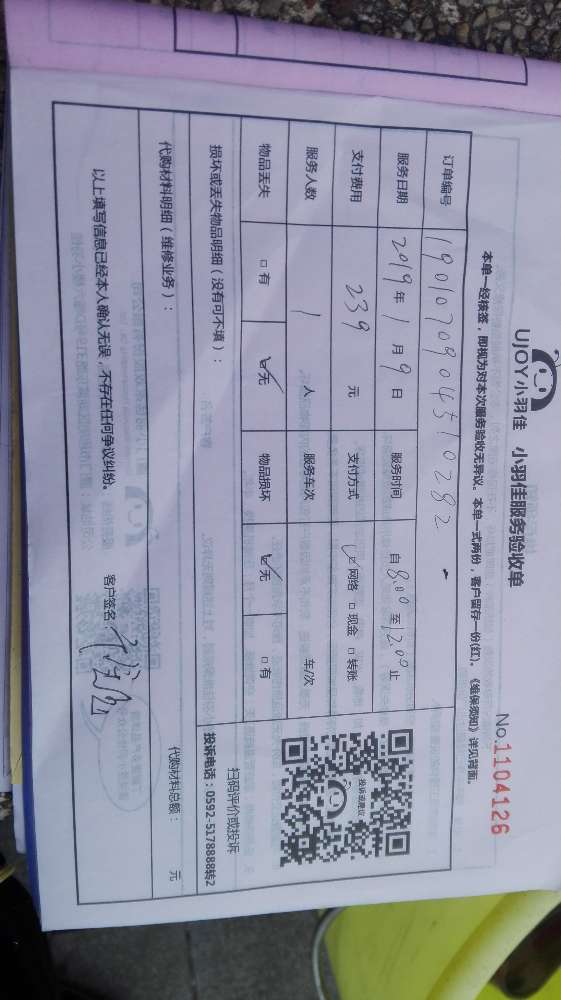 UJOY小羽佳 小羽佳服务验收单
No.1104126
本单一经核签，即视为对本次服务验收无异议。本单一式两份，客户留存一份(红)。《维保须知》详见背面。
订单编号 1901070904510282
服务日期 2019年1月9日 服务时间 自8:00至12:00止
支付费用 239 元 支付方式 ☑网络 □现金 □转账
服务人数 1 人 服务车次 车/次
物品丢失 □有 ☑无 物品损坏 ☑无 □有
投诉或建议
扫码评价或投诉
投诉电话：0592-5178888转2
损坏或丢失物品明细（没有可不填）：
代购材料明细（维修业务）： 代购材料总额： 元
以上填写信息已经本人确认无误，不存在任何争议纠纷。 客户签名：